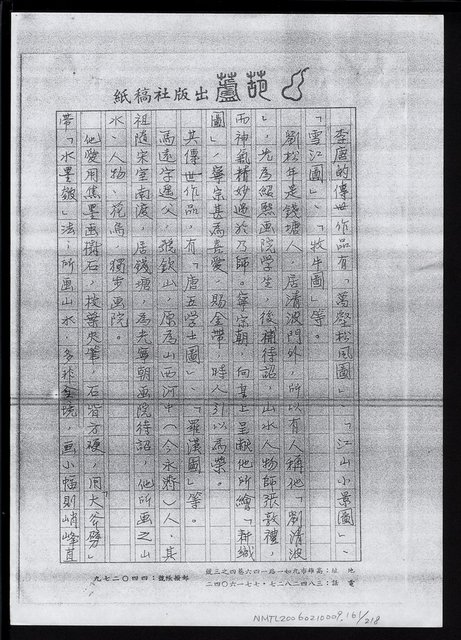 葫蘆出版社稿紙
李唐的傳世作品有「萬壑松風圖」、「江山小景圖」、
「雪江圖」、「牧牛圖」等。
劉松年是錢塘人，居清波門外，所以有人稱他「劉清波
」，先為紹熙畫院學生，後補待詔，山水人物師張敦禮，
而神氣精妙過於乃師。寧宗朝，向皇上呈献他所繪「耕織
圖」，寧宗甚為喜愛，賜金帶，時人引以為榮。
其傳世作品，有「唐五學士圖」、「羅漢圖」等。
馬遠字遙父，號欽山，原為山西河中（今永濟）人，其
祖隨宋室南渡，居錢塘，為光寧朝画院待詔，他所画之山
水、人物、花鳥，獨步画院。
他愛用焦墨画樹石，枝葉夾筆，石皆方硬，用「大斧劈」
帶「水墨皴」法；所画山水，多非全境，画小幅則峭峰直
地址：高雄市九如一路一四六巷四之三號
電話：三八四二八二七·七七一六〇四二
郵撥帳號：四四〇二七九
NMTL20060210009_161/218